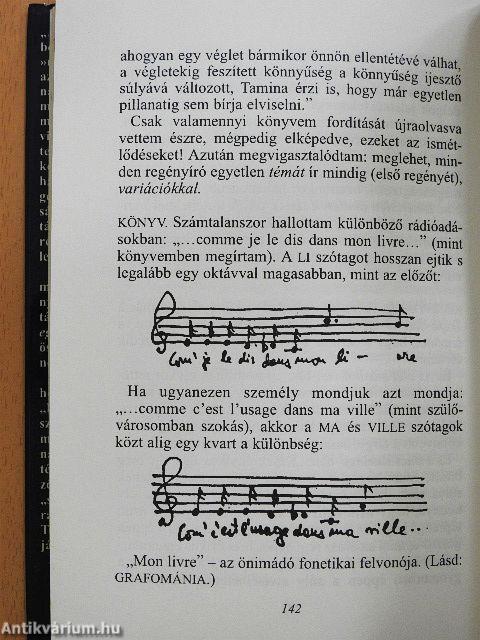 ahogyan egy véglet bármikor önnön ellentétévé válhat,
a végletekig feszített könnyűség a könnyűség ijesztő
súlyává változott, Tamina érzi is, hogy már egyetlen
pillanatig sem bírja elviselni.”
Csak valamennyi könyvem fordítását újraolvasva
vettem észre, mégpedig elképedve, ezeket az ismét-
lődéseket! Azután megvigasztalódtam: meglehet, min-
den regényíró egyetlen témát ír mindig (első regényét),
variációkkal.
KÖNYV. Számtalanszor hallottam különböző rádióadá-
sokban: „...comme je le dis dans mon livre...” (mint
könyvemben megírtam). A LI szótagot hosszan ejtik s
legalább egy oktávval magasabban, mint az előzőt:
Com' je le dis dans mon li – vre
Ha ugyanezen személy mondjuk azt mondja:
„...comme c'est l'usage dans ma ville” (mint szülő-
városomban szokás), akkor a MA és VILLE szótagok
közt alig egy kvart a különbség:
Com' c'est l'usage dans ma ville...
„Mon livre” – az önimádó fonetikai felvonója. (Lásd:
GRAFOMÁNIA.)
142
Antikvárium.hu